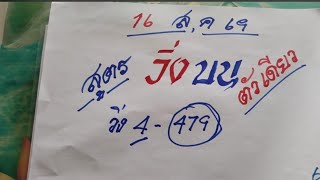 16 ส.ค 69
สูตร วิ่งบน ตัวเดียว
วิ่ง 4 - 479